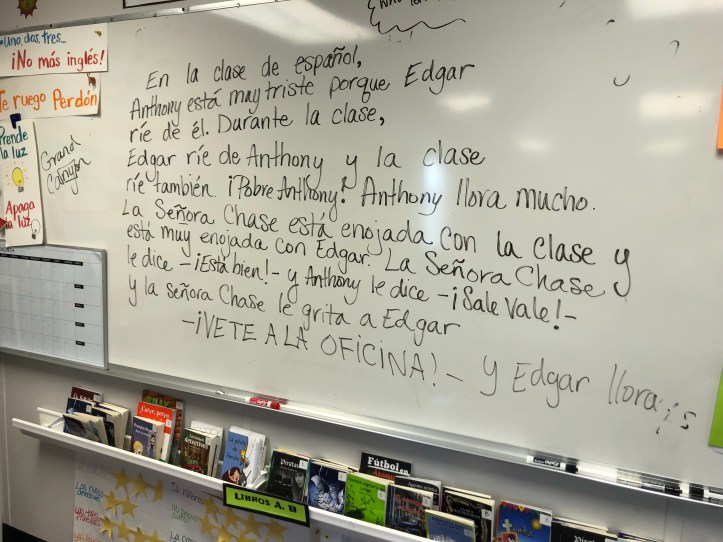 Uno, dos, tres...
¡No más inglés!
Te ruego Perdón
Prende
la luz
Apaga
la luz
Grand
Canyon
En la clase de español,
Anthony está muy triste porque Edgar
ríe de él. Durante la clase,
Edgar ríe de Anthony y la clase
ríe también. ¡Pobre Anthony! Anthony llora mucho.
La Señora Chase está enojada con la clase y
está muy enojada con Edgar. La Señora Chase
le dice -¡Está bien!- y Anthony le dice -¡Sale Vale!-
y la señora Chase le grita a Edgar
-¡VETE A LA OFICINA!- y Edgar llora
Fútbol
Piratas
LIBROS A, B